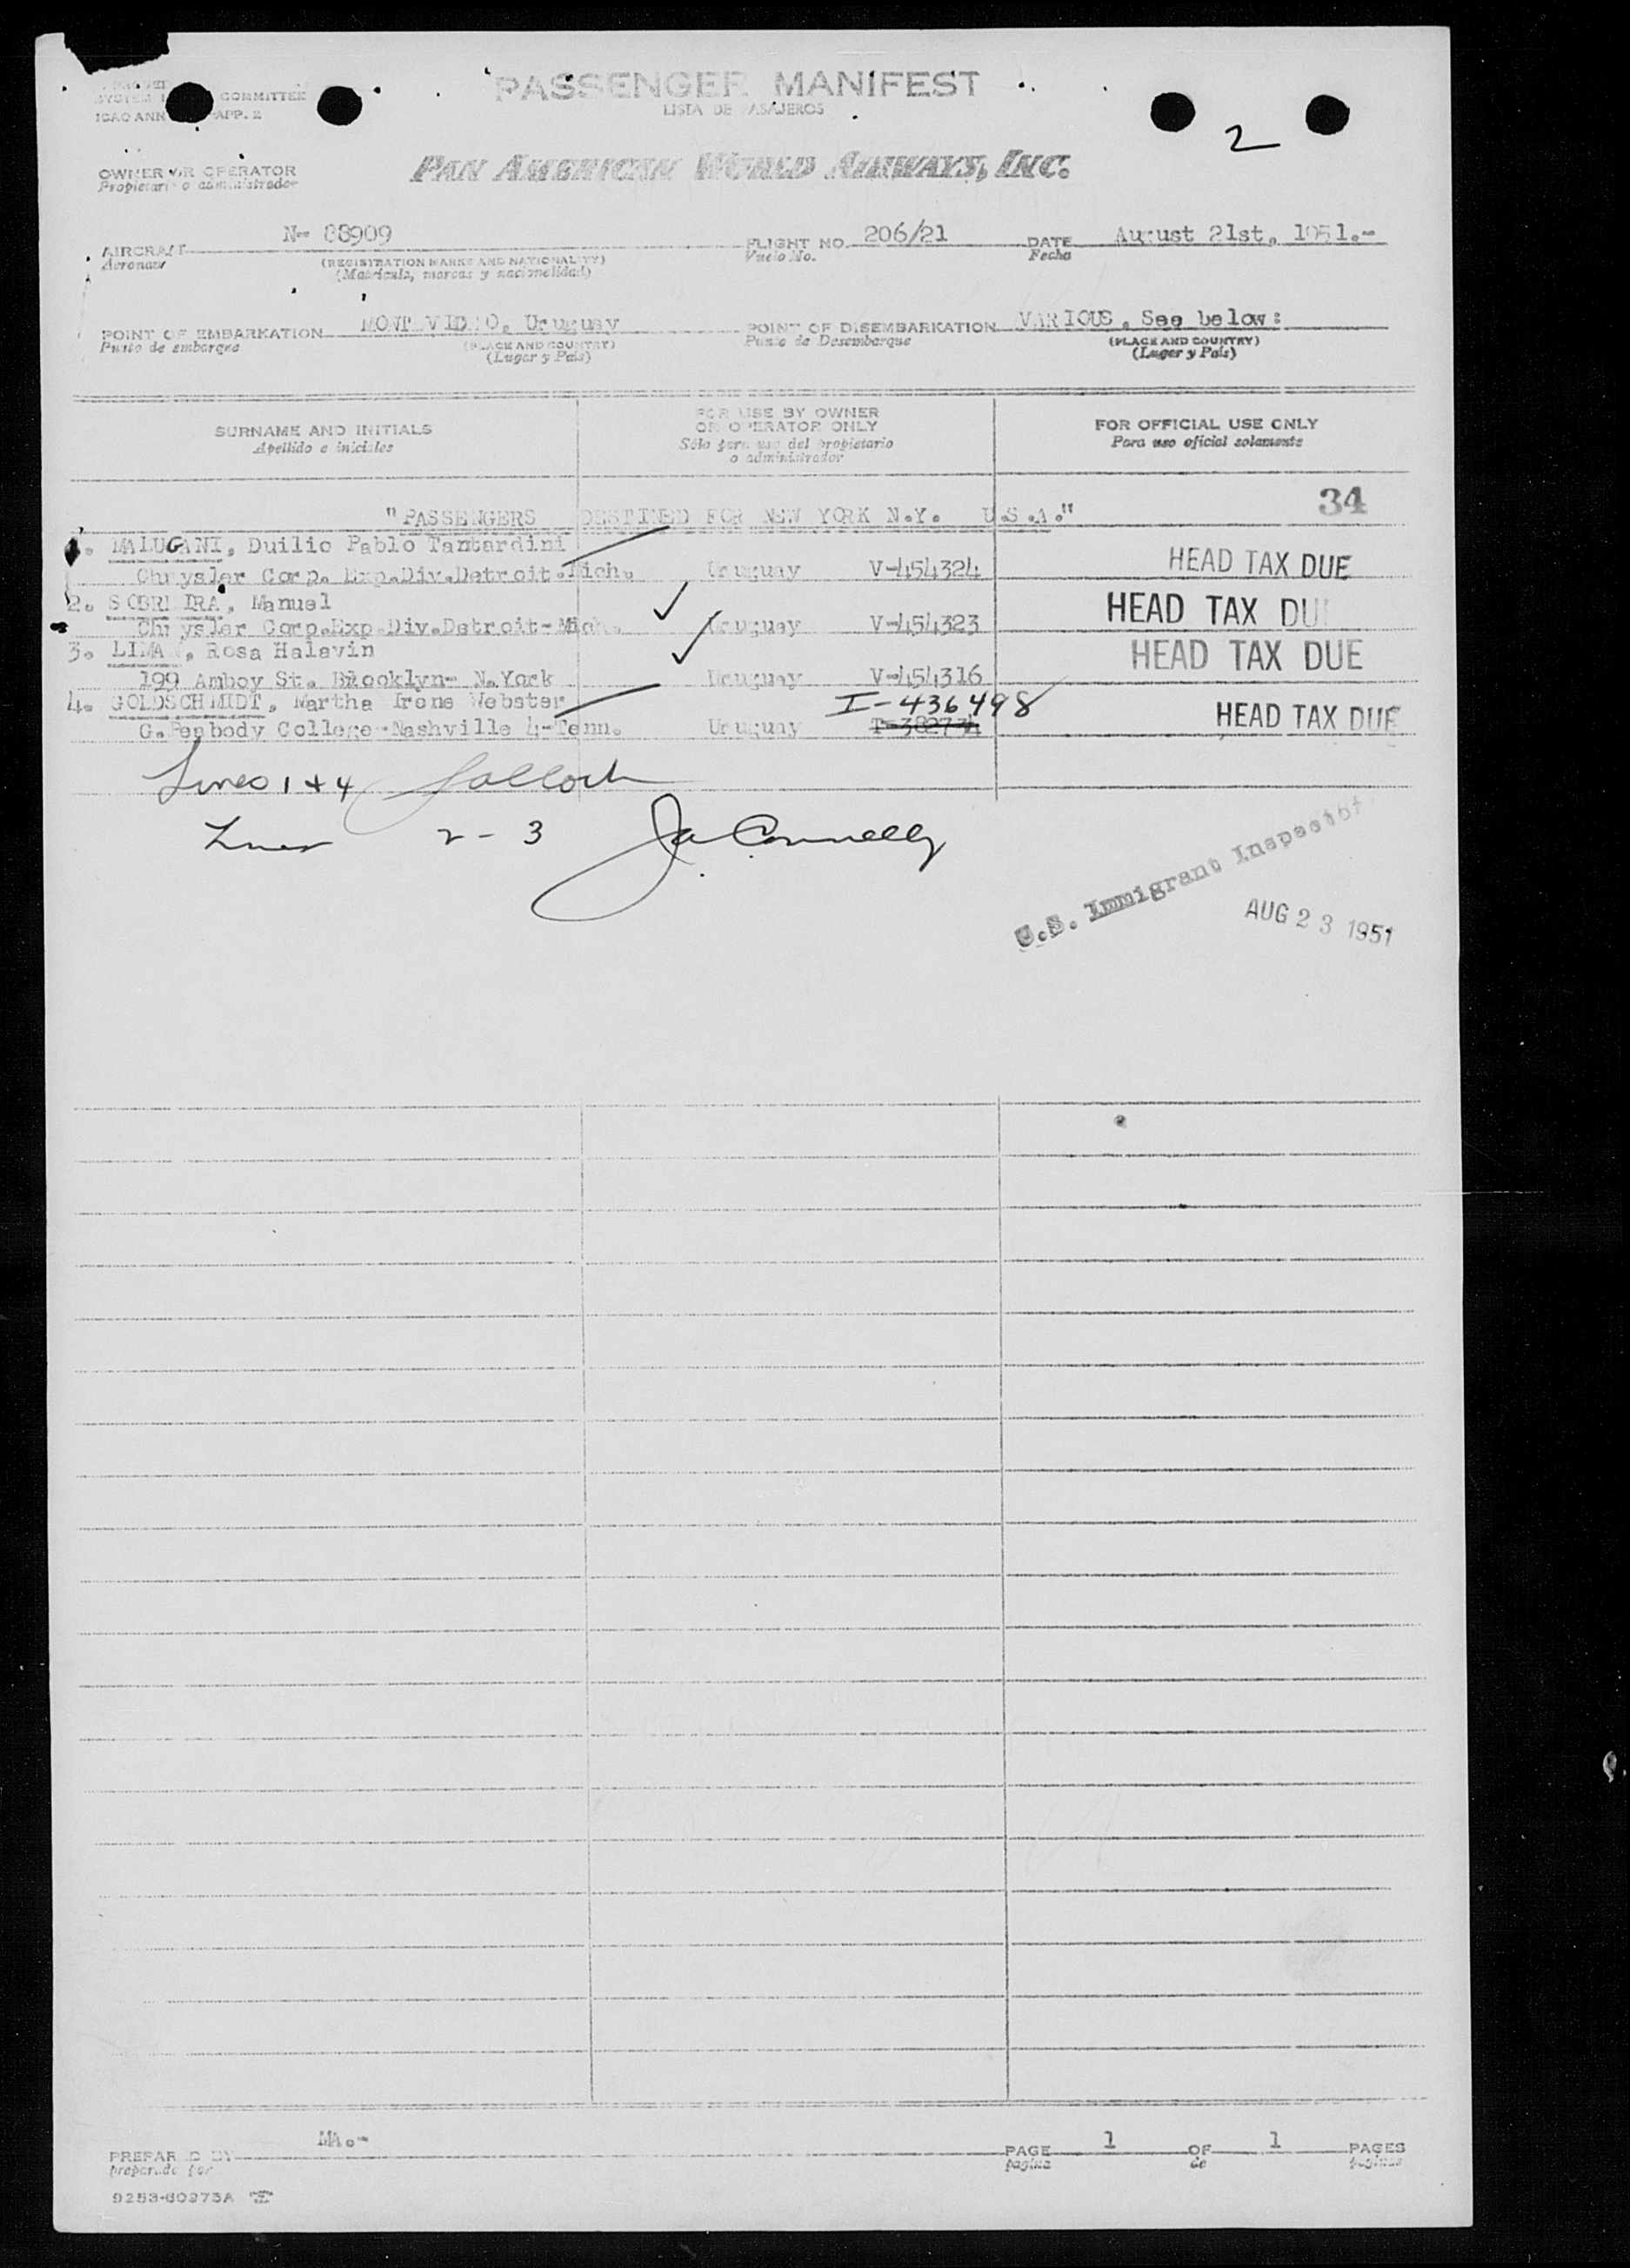 COMMITTEE
ICAO ANN APP. 2
PASSENGER MANIFEST
LISTA DE PASAJEROS
2
OWNER OR OPERATOR
Propietario o administrador
PAN AMERICAN WORLD AIRWAYS, INC.
AIRCRAFT N- 88909 FLIGHT NO. 206/21 DATE August 21st, 1951.-
Aeronave (REGISTRATION MARKS AND NATIONALITY) Vuelo No. Fecha
(Matrícula, marcas y nacionalidad)
POINT OF EMBARKATION MONTEVIDEO, Uruguay POINT OF DISEMBARKATION VARIOUS, See below:
Punto de embarque (PLACE AND COUNTRY) Punto de Desembarque (PLACE AND COUNTRY)
(Lugar y País) (Lugar y País)
SURNAME AND INITIALS FOR USE BY OWNER OR OPERATOR ONLY FOR OFFICIAL USE ONLY
Apellido e iniciales Sólo para uso del propietario o administrador Para uso oficial solamente
34
"PASSENGERS DESTINED FOR NEW YORK N.Y. U.S.A."
1. MALUGANI, Duilio Pablo Tantardini
Chrysler Corp. Exp.Div.Detroit.Mich. Uruguay V-454324 HEAD TAX DUE
2. SOBREIRA, Manuel
Chrysler Corp.Exp Div.Detroit-Mich. Uruguay V-454323 HEAD TAX DU
3. LIMA, Rosa Halavin HEAD TAX DUE
199 Amboy St. Brooklyn- N.York Uruguay V-454316
4. GOLDSCHMIDT, Martha Irene Webster I-436498
G.Peabody College-Nashville 4-Tenn. Uruguay T-382734 HEAD TAX DUE
Lines 1 + 4
Lines 2 - 3 Ja Connelly
U.S. Immigrant Inspector
AUG 23 1951
PREPARED BY MA.- PAGE 1 OF 1 PAGES
preparado por pagina de paginas
9253-60973A